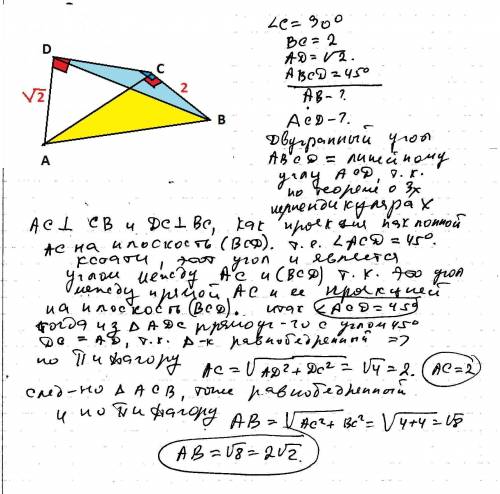 ∠C = 90°
BC = 2
AD = √2.
ABCD = 45°
AB - ?
ACD - ?
Двугранный угол
ABCD = линейному
углу ACD, т.к.
по теореме о 3х
перпендикулярах
D
C
√2
2
B
A
AC ⊥ CB и DC ⊥ BC, как проекция наклонной
AC на плоскость (BCD). т.е. ∠ACD = 45°.
кстати, этот угол и является
углом между AC и (BCD) т.к. это угол
между прямой AC и ее проекцией
на плоскость (BCD). итак ∠ACD = 45°
тогда из △ADC прямоуг-го с углом 45°
DC = AD, т.к. △-к равнобедренный =>
по Пифагору AC = √AD² + DC² = √4 = 2. AC = 2
след-но △ACB, тоже равнобедренный
и по Пифагору AB = √AC² + BC² = √4+4 = √8
AB = √8 = 2√2.